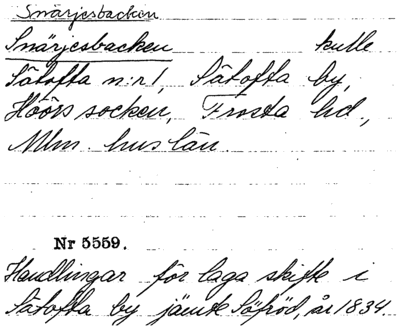 Snärjesbacken
Snärjesbacken kulle
Sätofta n:r 1, Sätofta by,
Höörs socken, Frosta hd.,
Mlm. hus län.
Nr 5559.
Handlingar för laga skifte i
Sätofta by jämte Söfröd, år 1834.